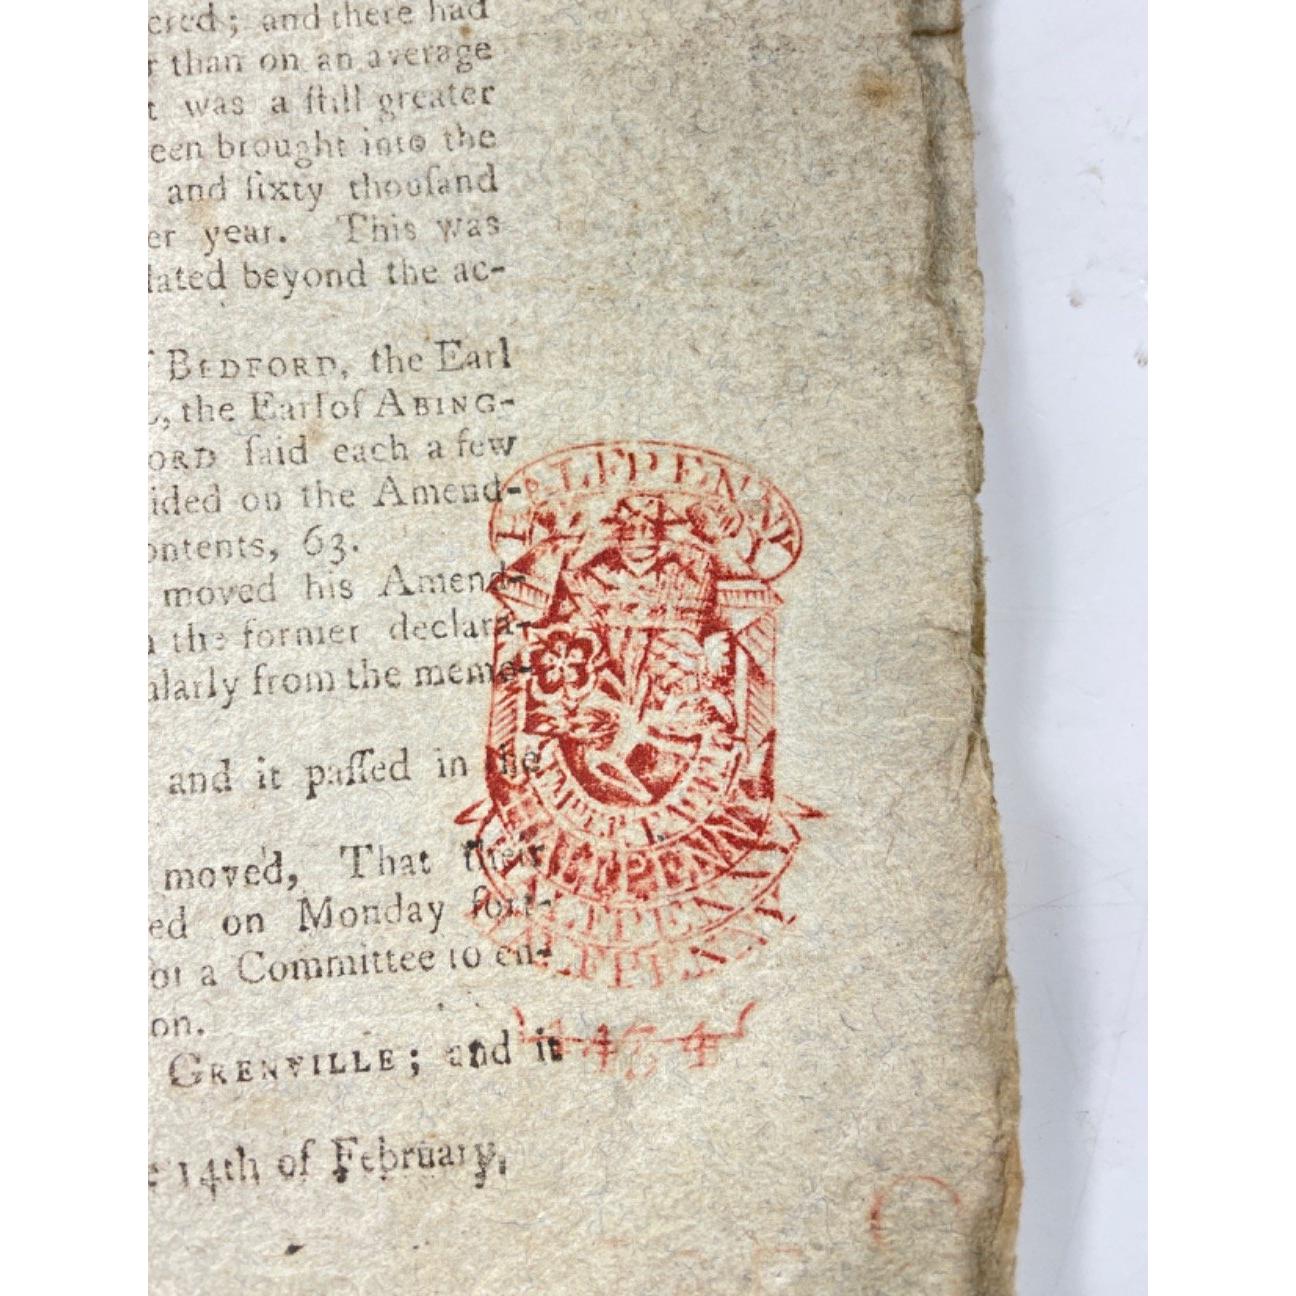 ered; and there had
r than on an average
t was a ſtill greater
een brought into the
and ſixty thouſand
er year. This was
lated beyond the ac-
f BEDFORD, the Earl
, the Earl of ABING-
ORD ſaid each a few
ided on the Amend-
ontents, 63.
moved his Amend-
n the former declara-
ularly from the memo-
and it paſſed in the
moved, That their
ed on Monday fort-
or a Committee to en-
on.
GRENVILLE; and it
e 14th of February,
HALFPENNY
HALFPENNY
HALFPENNY
HALFPENNY